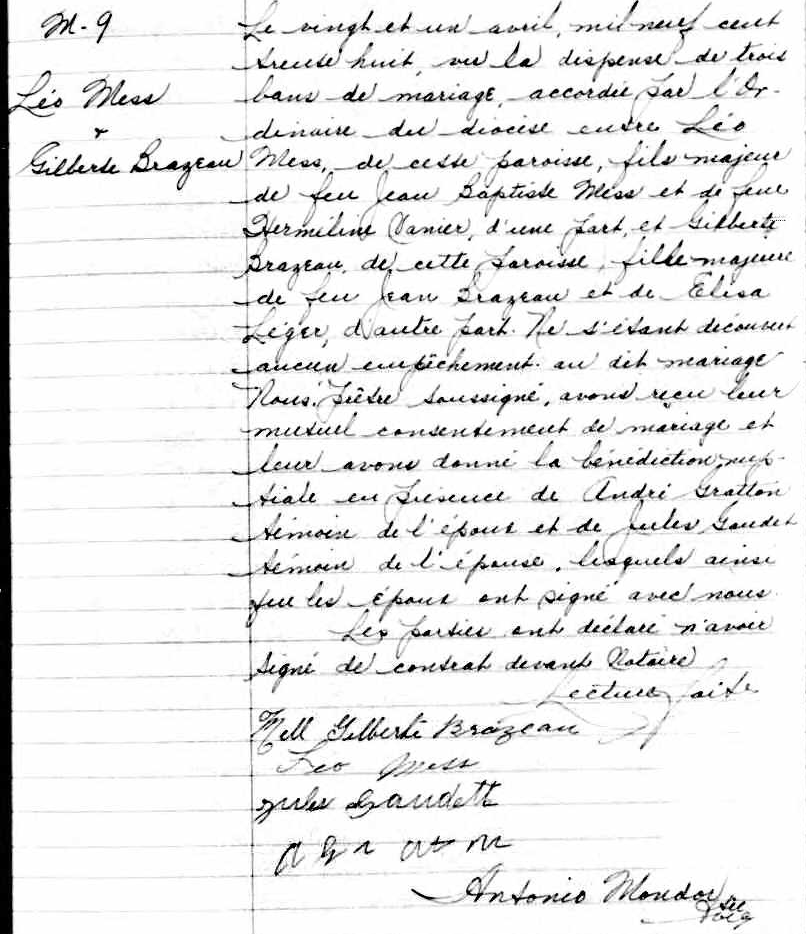 M-9
Léo Mess
&
Gilberte Brazeau
Le vingt et un avril, mil neuf cent
treuse huit, vu la dispense de trois
bans de mariage, accordée par l'Or-
dinaire du diocèse entre Léo
Mess, de cette paroisse, fils majeur
de feu Jean Baptiste Mess et de feue
Herméline Vanier, d'une part, et Gilberte
Brazeau, de cette paroisse, fille majeure
de feu Jean Brazeau et de Elisa
Léger, d'autre part. Ne s'étant découvert
aucun empêchement au dit mariage
Nous, prêtre soussigné, avons reçu leur
mutuel consentement de mariage et
leur avons donné la bénédiction nup-
tiale en présence de André Gratton
témoin de l'époux et de Jules Gaudet
témoin de l'épouse, lesquels ainsi
que les époux ont signé avec nous.
Les parties ont déclaré n'avoir
signé de contrat devant Notaire
Lecture faite
Mell Gilberte Brazeau
Léo Mess
Jules Gaudette
Antonio Mondor